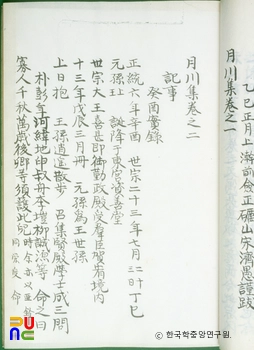 月川集卷之一
乙巳正月上澣前僉正礪山宋濟愚謹跋
月川集卷之二
記事
癸酉實錄
正統六年辛酉 世宗二十三年七月二十三日丁巳
元孫 誕降于東宮資善堂
世宗大王喜甚卽御勤政殿受群臣賀宥境內
十三年戊辰三月冊 元孫爲王世孫
上日抱 王孫逍遙散步 召集賢殿學士成三問
朴彭年河緯地申叔舟李塏柳誠源等 命之曰
寡人千秋萬歲後卿等須護此兒
ⓒ 한국학중앙연구원.